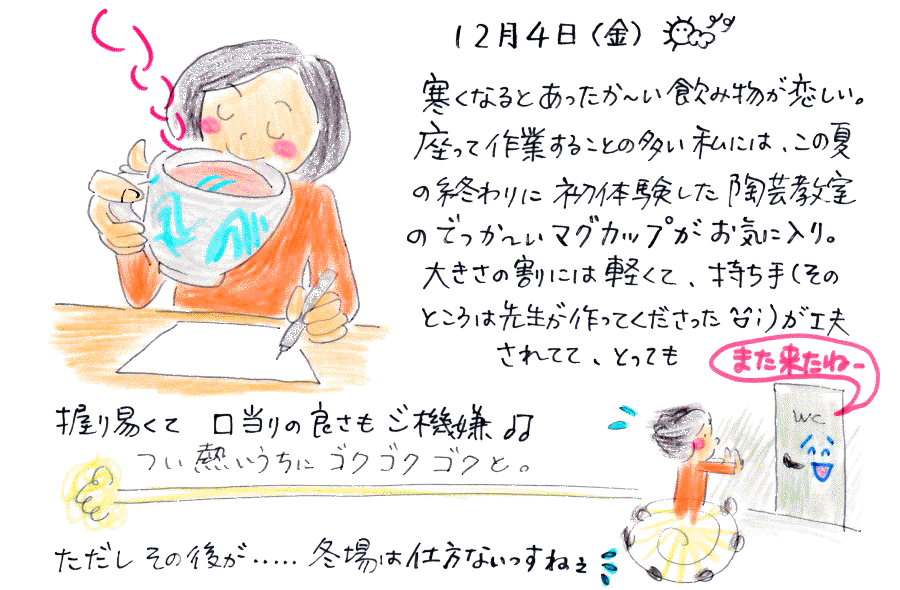 12月4日（金）
寒くなるとあったか〜い飲み物が恋しい。
座って作業することの多い私には、この夏
の終わりに初体験した陶芸教室
のでっか〜いマグカップがお気に入り。
大きさの割には軽くて、持ち手（その
ところは先生が作ってくださった）が工夫
されてて、とっても
また来たねー
WC
握り易くて 口当りの良さもご機嫌♫
つい熱いうちにゴクゴクゴクと。
ただしその後が‥‥‥冬場は仕方ないっすねぇ